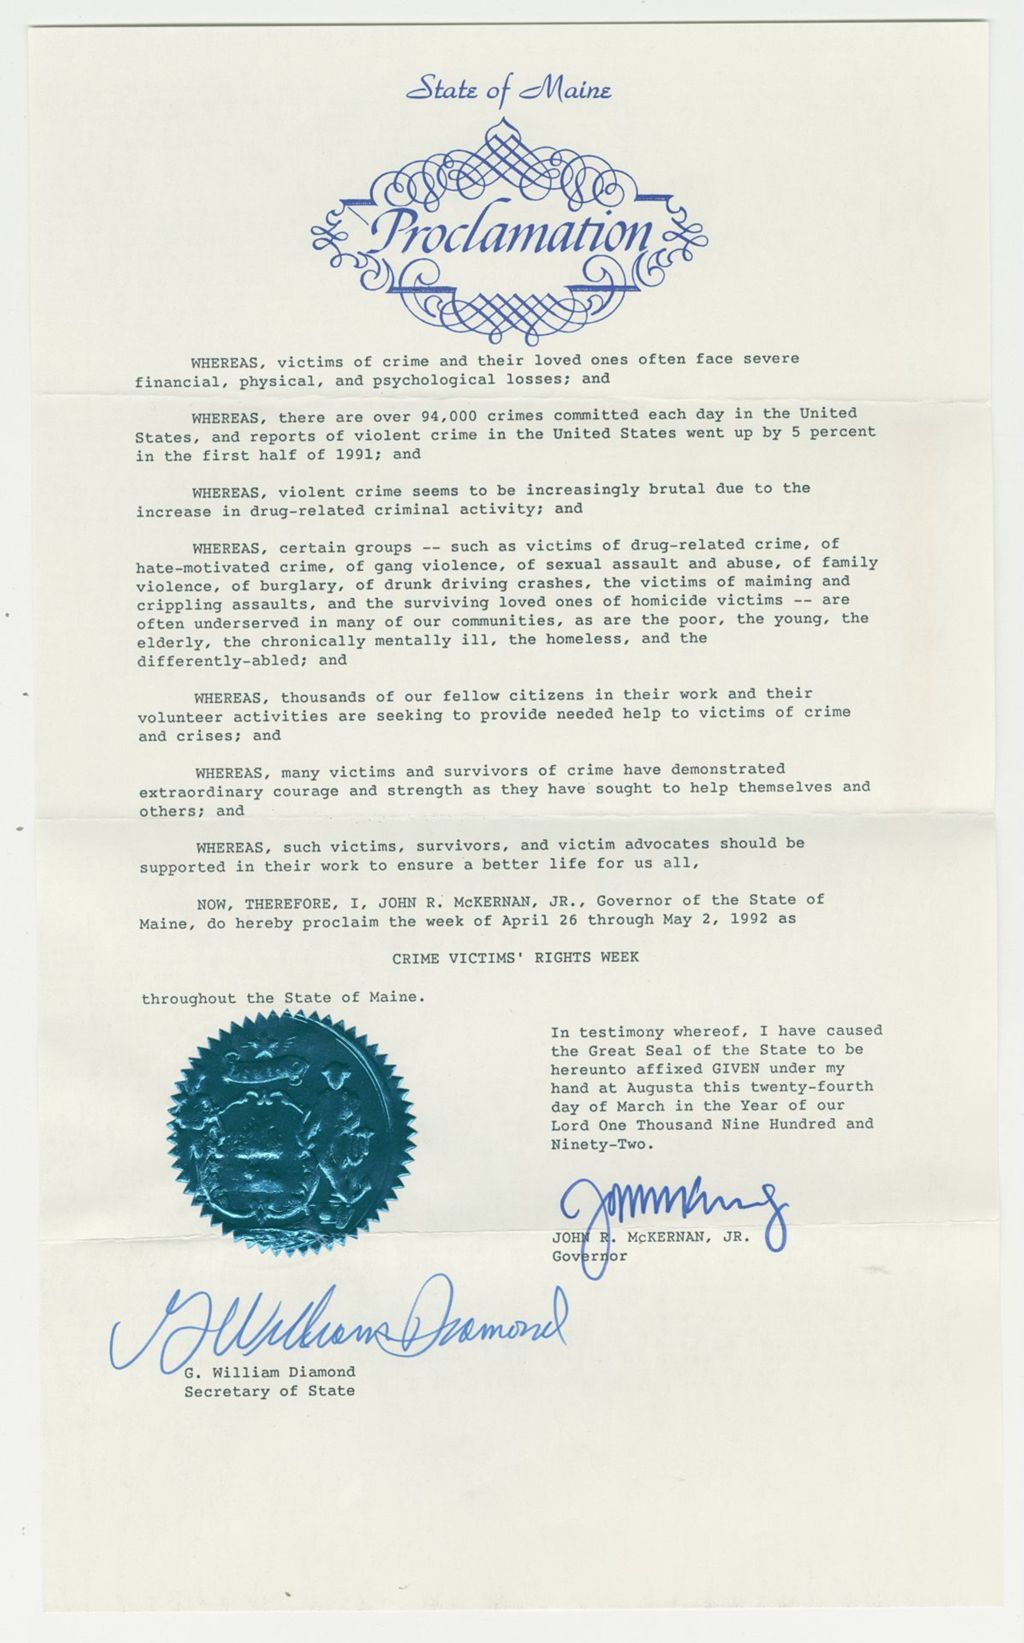 State of Maine
Proclamation
WHEREAS, victims of crime and their loved ones often face severe
financial, physical, and psychological losses; and
WHEREAS, there are over 94,000 crimes committed each day in the United
States, and reports of violent crime in the United States went up by 5 percent
in the first half of 1991; and
WHEREAS, violent crime seems to be increasingly brutal due to the
increase in drug-related criminal activity; and
WHEREAS, certain groups -- such as victims of drug-related crime, of
hate-motivated crime, of gang violence, of sexual assault and abuse, of family
violence, of burglary, of drunk driving crashes, the victims of maiming and
crippling assaults, and the surviving loved ones of homicide victims -- are
often underserved in many of our communities, as are the poor, the young, the
elderly, the chronically mentally ill, the homeless, and the
differently-abled; and
WHEREAS, thousands of our fellow citizens in their work and their
volunteer activities are seeking to provide needed help to victims of crime
and crises; and
WHEREAS, many victims and survivors of crime have demonstrated
extraordinary courage and strength as they have sought to help themselves and
others; and
WHEREAS, such victims, survivors, and victim advocates should be
supported in their work to ensure a better life for us all,
NOW, THEREFORE, I, JOHN R. McKERNAN, JR., Governor of the State of
Maine, do hereby proclaim the week of April 26 through May 2, 1992 as
CRIME VICTIMS' RIGHTS WEEK
throughout the State of Maine.
In testimony whereof, I have caused
the Great Seal of the State to be
hereunto affixed GIVEN under my
hand at Augusta this twenty-fourth
day of March in the Year of our
Lord One Thousand Nine Hundred and
Ninety-Two.
JOHN R. McKERNAN, JR.
Governor
G William Diamond
G. William Diamond
Secretary of State